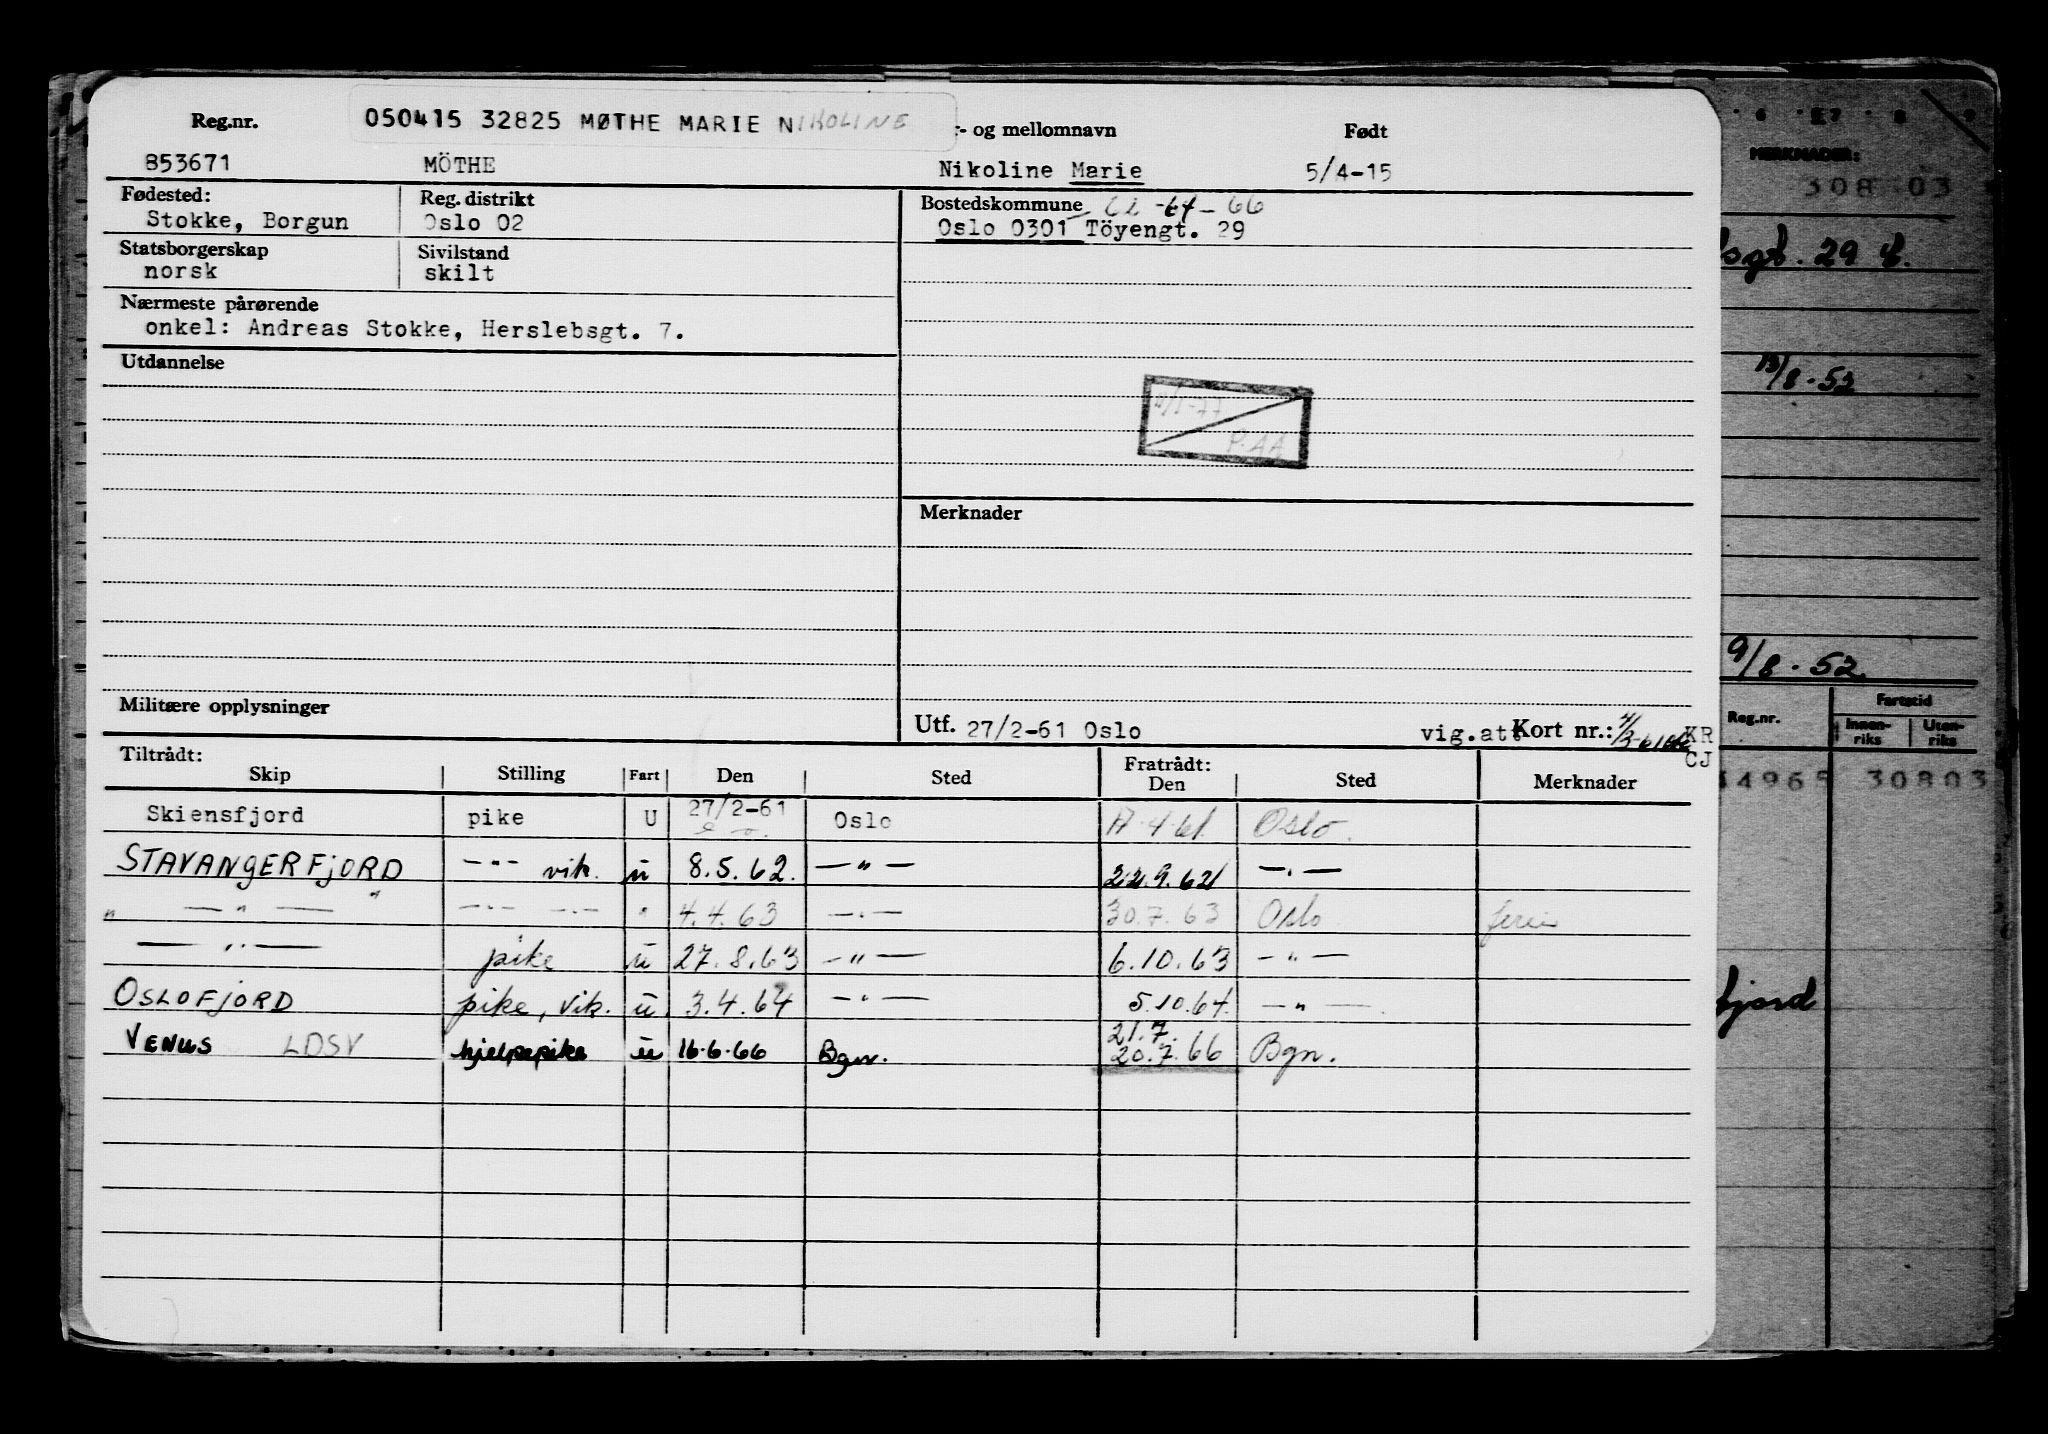 Reg.nr. 050415 32825 MØTHE MARIE NIKOLINE - og mellomnavn Født
853671 MÖTHE Nikoline Marie 5/4-15
Fødested: Reg. distrikt Bostedskommune 62-64-66
Stokke, Borgun Oslo 02 Oslo 0301 Töyengt. 29
Statsborgerskap Sivilstand
norsk skilt
Nærmeste pårørende
onkel: Andreas Stokke, Herslebsgt. 7.
Utdannelse
P.AA
Merknader
Militære opplysninger
Utf. 27/2-61 Oslo vig.att Kort nr.: KR
CJ
Tiltrådt: Fratrådt:
Skip Stilling Fart Den Sted Den Sted Merknader
Skiensfjord pike U 27/2-61 Oslo 17.4.61. Oslo.
STAVANGERFJORD -"- vik. u 8.5.62. -"- 22.9.62 -"-
" -"- " -"- -"- " 4.4.63 -"- 30.7.63 Oslo ferie
-"- pike u 27.8.63 -"- 6.10.63 -"-
OSLOFJORD pike, vik. u 3.4.64 -"- 5.10.64. -"-
VENUS LDSV hjelpepike u 16.6.66 Bgn. 21.7. 20.7.66 Bgn.
MERKNADER:
308 03
sgt. 29
13/8-52
9/8.52.
Fartstid
Reg.nr. Innen-riks Uten-riks
34965 30803
fjord